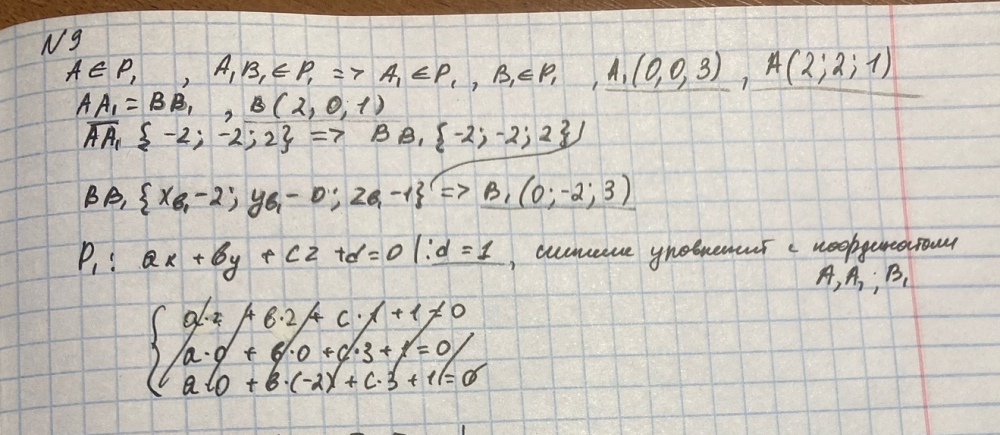 N9
A ∈ P₁ , A₁B₁ ∈ P₁ => A₁ ∈ P₁ , B₁ ∈ P₁ , A₁(0,0,3) , A(2;2;1)
AA₁ = BB₁ , B(2,0;1)
AA₁ {-2; -2; 2} => BB₁ {-2; -2; 2}
BB₁ {xв₁-2; yв₁-0; zв₁-1} => B₁(0;-2;3)
P₁: ax + вy + cz + d = 0 |:d = 1, уравнений с координатами
A, A₁; B₁
a·2 + в·2 + c·1 + 1 = 0
a·0 + в·0 + c·3 + 1 = 0
a·0 + в·(-2) + c·3 + 1 = 0